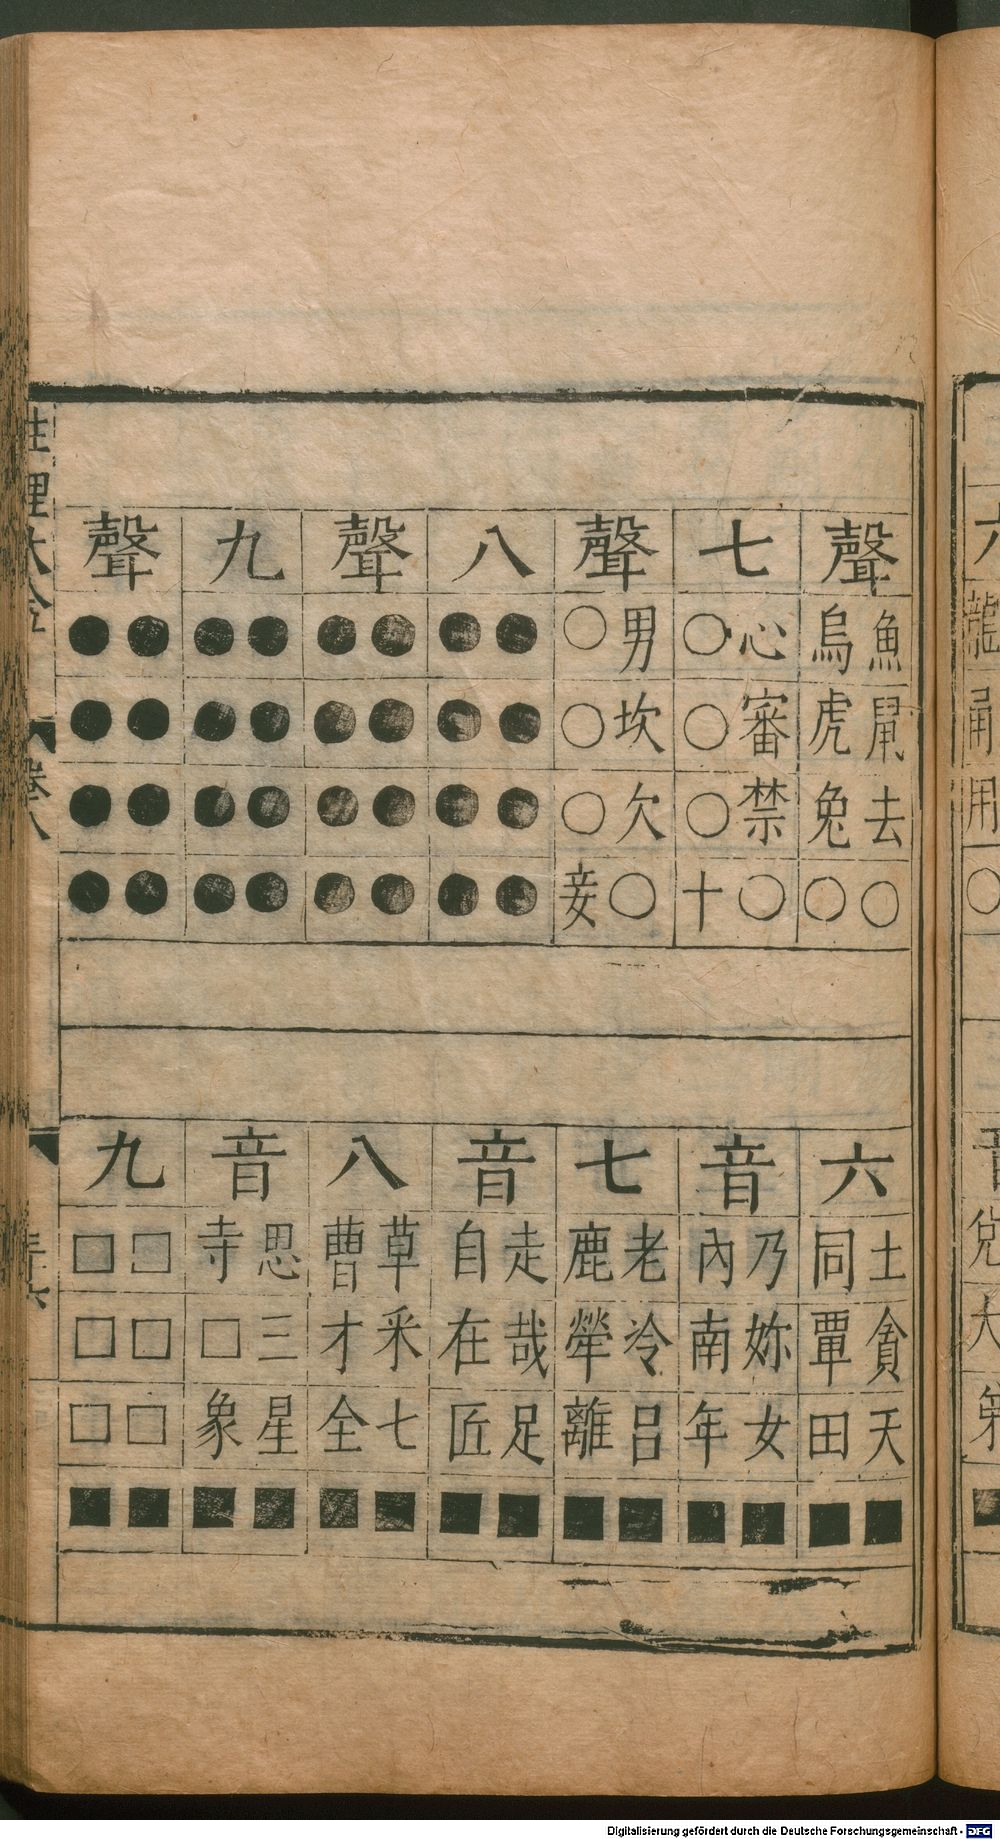 聲 七 聲 八 聲 九 聲
魚鼠去○
烏虎兔○
心審禁○
○○○十
男坎欠○
○○○妾
●●●●
●●●●
●●●●
●●●●
●●●●
●●●●
●●●●
●●●●
六 音 七 音 八 音 九
土貪天■
同覃田■
乃妳女■
內南年■
老冷呂■
鹿犖離■
走哉足■
自在匠■
草采七■
曹才全■
思三星■
寺□象■
□□□■
□□□■
性理大全
卷八
Digitalisierung gefördert durch die Deutsche Forschungsgemeinschaft - DFG